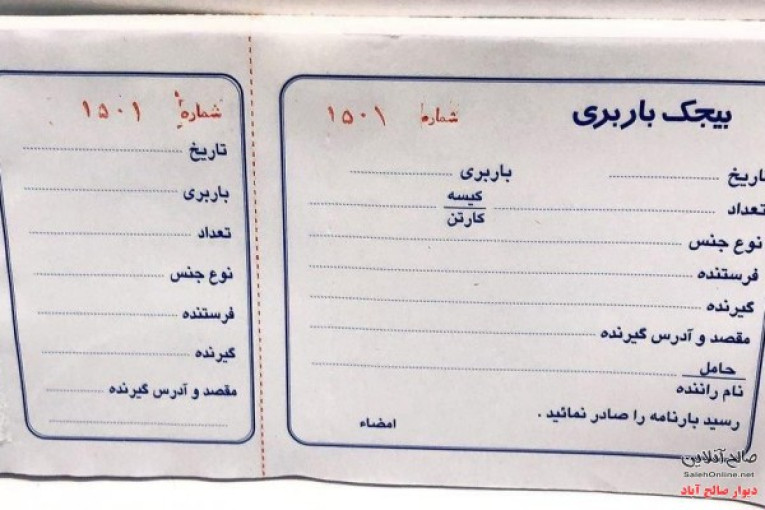 بیجک باربری
شماره ۱۵۰۱
تاریخ باربری
تعداد کیسه
کارتن
نوع جنس
فرستنده
گیرنده
مقصد و آدرس گیرنده
حامل
نام راننده
رسید بارنامه را صادر نمائید .
امضاء
شماره ۱۵۰۱
تاریخ
باربری
تعداد
نوع جنس
فرستنده
گیرنده
مقصد و آدرس گیرنده
صالح آنلاین
SalehOnline.net
دیوار صالح آباد